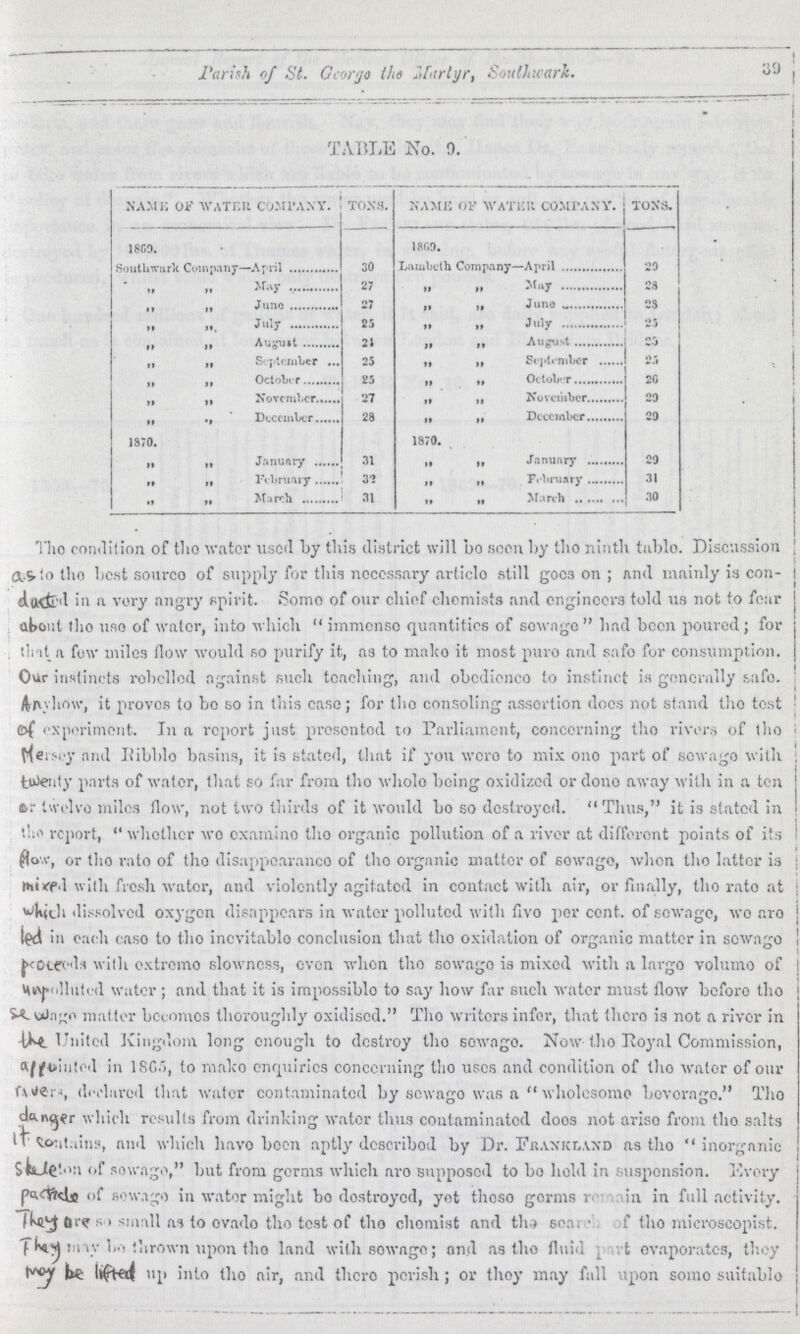 Parish of St. George the Martyr, Southwark. 39
TABLE No. 9.
NAME OF WATER COMPANY. TONS. NAME OF WATER COMPANY. TONS.
1869. 1869.
Southwark Company—April ............ 30 Lambeth Company—April ............... 29
„ „ May ............ 27 „ „ May ............... 28
„ „ June ............ 27 „ „ June ............... 28
„ „ July ............ 25 „ „ July ............... 25
„ „ August ......... 21 „ „ August ............ 25
„ „ September ... 25 „ „ September ...... 25
„ „ October......... 25 „ „ October............ 26
„ „ November...... 27 „ „ November......... 29
„ „ December...... 28 „ „ December......... 29
1870. 1870.
„ „ January ...... 31 „ „ January ......... 29
„ „ February ...... 32 „ „ February ......... 31
„ „ March ......... 31 „ „ March ............ 30
The condition of the water used by this district will be seen by the ninth table. Discussion
as to the best source of supply for this necessary article still goes on ; and mainly is con-
ducted in a very angry spirit. Some of our chief chemists and engineers told us not to fear
about the use of water, into which "immense quantities of sewage" had been poured; for
that a few miles flow would so purify it, as to make it most pure and safe for consumption.
Our instincts rebelled against such teaching, and obedience to instinct is generally safe.
Anyhow, it proves to be so in this case; for the consoling assertion does not stand the test
of experiment. In a report just presented to Parliament, concerning the rivers of the
Mersey and Ribble basins, it is stated, that if you were to mix one part of sewage with
twenty parts of water, that so far from the whole being oxidized or done away with in a ten
or twelve miles flow, not two thirds of it would be so destroyed. "Thus," it is stated in
the report, "whether we examine the organic pollution of a river at different points of its
flow, or the rate of the disappearance of the organic matter of sewage, when the latter is
mixed with fresh water, and violently agitated in contact with air, or finally, the rate at
which dissolved oxygen disappears in water polluted with five per cent. of sewage, we are
led in each case to the inevitable conclusion that the oxidation of organic matter in sewage
proceeds with extreme slowness, even when the sewage is mixed with a large volume of
unpolluted water ; and that it is impossible to say how far such water must flow before the
sewage matter becomes thoroughly oxidised." The writers infer, that there is not a river in
the United Kingdom long enough to destroy the sewage. Now the Royal Commission,
appointed in 1865, to make enquiries concerning the uses and condition of the water of our
rivers, declared that water contaminated by sewage was a "wholesome beverage." The
danger which results from drinking water thus contaminated does not arise from the salts
it contains, and which have been aptly described by Dr. FRANKLAND as the "inorganic
Skeleton of sewage," but from germs which are supposed to be held in suspension. Every
particle of sewage in water might be destroyed, yet these germs remain in full activity.
They are so small as to evade the test of the chemist and the search of the microscopist.
They may be thrown upon the land with sewage; and as the fluid part evaporates, they
may be lifted up into the air, and there perish ; or they may fall upon some suitable